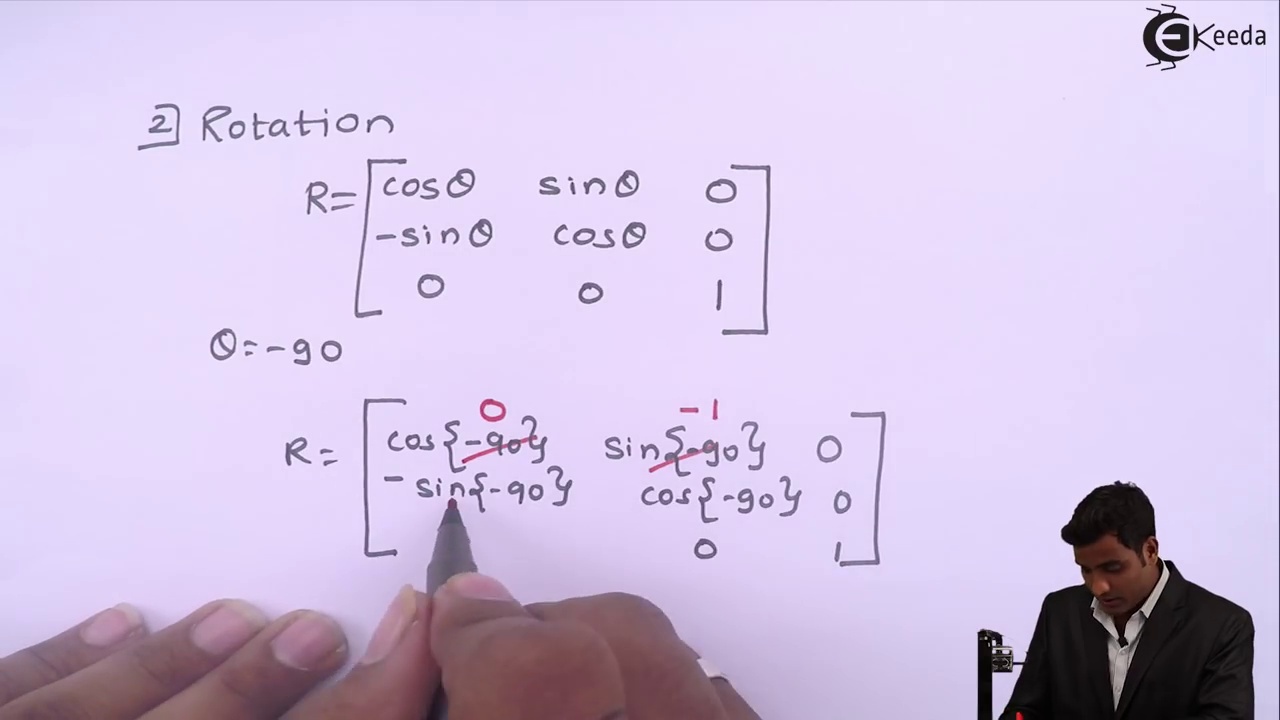 EKeeda
2] Rotation
R= [cosθ sinθ 0
-sinθ cosθ 0
0 0 1]
θ=-90
0 -1
R= [cos{-90} sin{-90} 0
-sin{-90} cos{-90} 0
0 1]